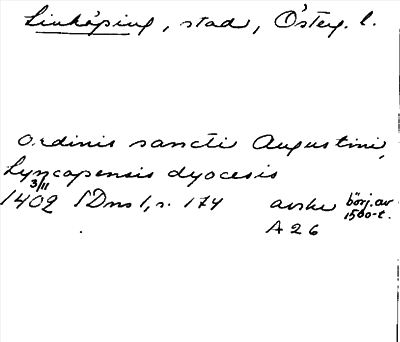 Linköping, stad, Österg. l.
ordinis sancti Augustini,
Lyncopensis dyocesis
3/11
1402 SDns 1, s. 174 avskr börj. av 1500-t.
A 26